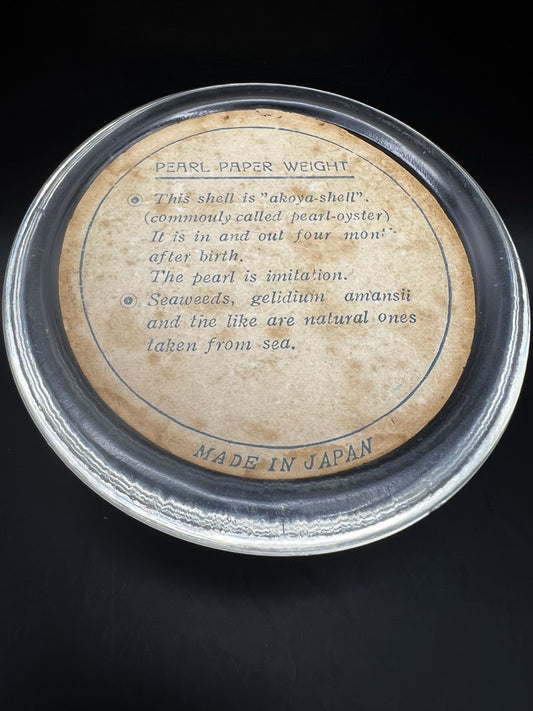 PEARL PAPER WEIGHT
This shell is "akoya-shell".
(commouly called pearl-oyster)
It is in and out four
after birth.
The pearl is imitation.
Seaweeds, gelidium amansii
and the like are natural ones
taken from sea.
MADE IN JAPAN